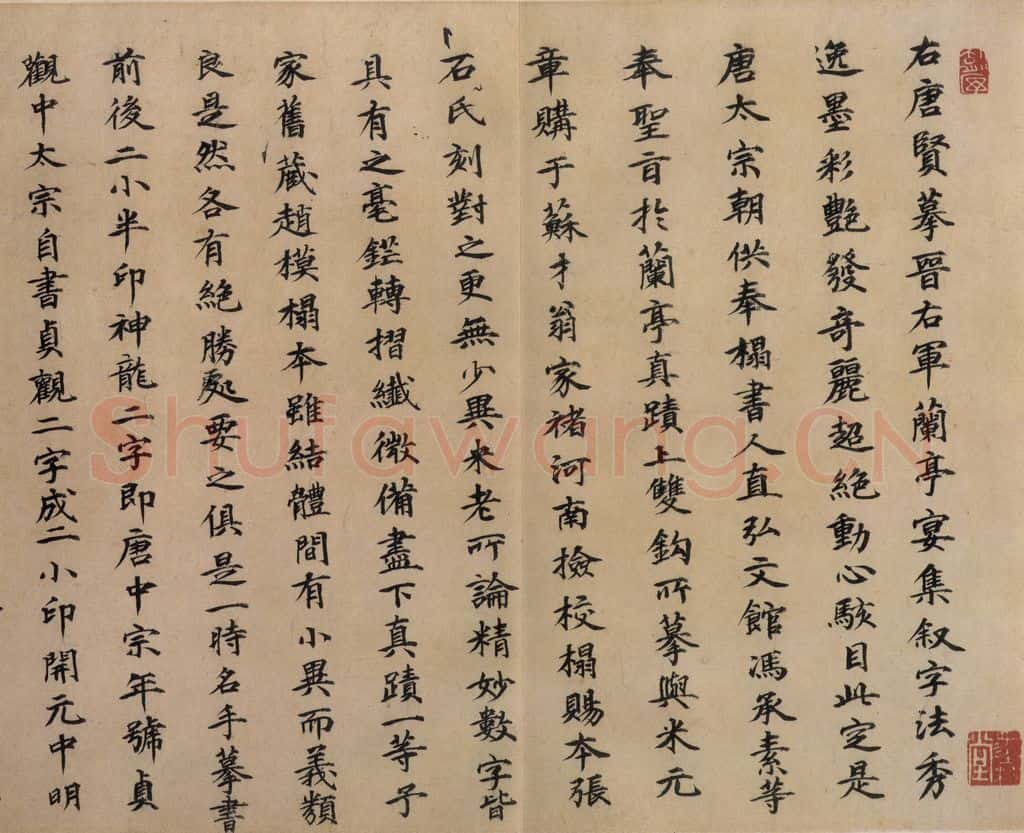 右唐賢摹晉右軍蘭亭宴集叙字法秀
逸墨彩艷發奇麗超絶動心駭目此定是
唐太宗朝供奉榻書人直弘文館馮承素等
奉聖旨於蘭亭真蹟上雙鈎所摹與米元
章購于蘇才翁家褚河南撿校榻賜本張
石氏刻對之更無少異米老所論精妙數字皆
具有之毫鋩轉摺纖微備盡下真蹟一等予
家舊蔵趙模榻本雖結體間有小異而義類
良是然各有絶勝處要之俱是一時名手摹書
前後二小半印神龍二字即唐中宗年號貞
觀中太宗自書貞觀二字成二小印開元中明
Shufawang.CN